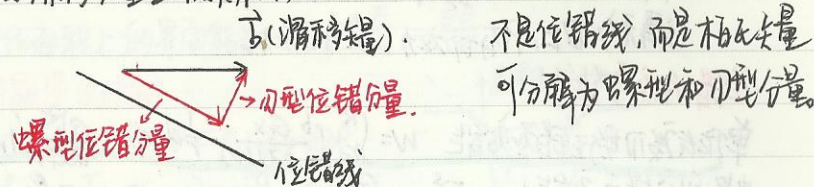 b(滑移矢量).
不是位错线,而是柏氏矢量
可分解为螺型和刃型分量。
刃型位错分量.
螺型位错分量
位错线